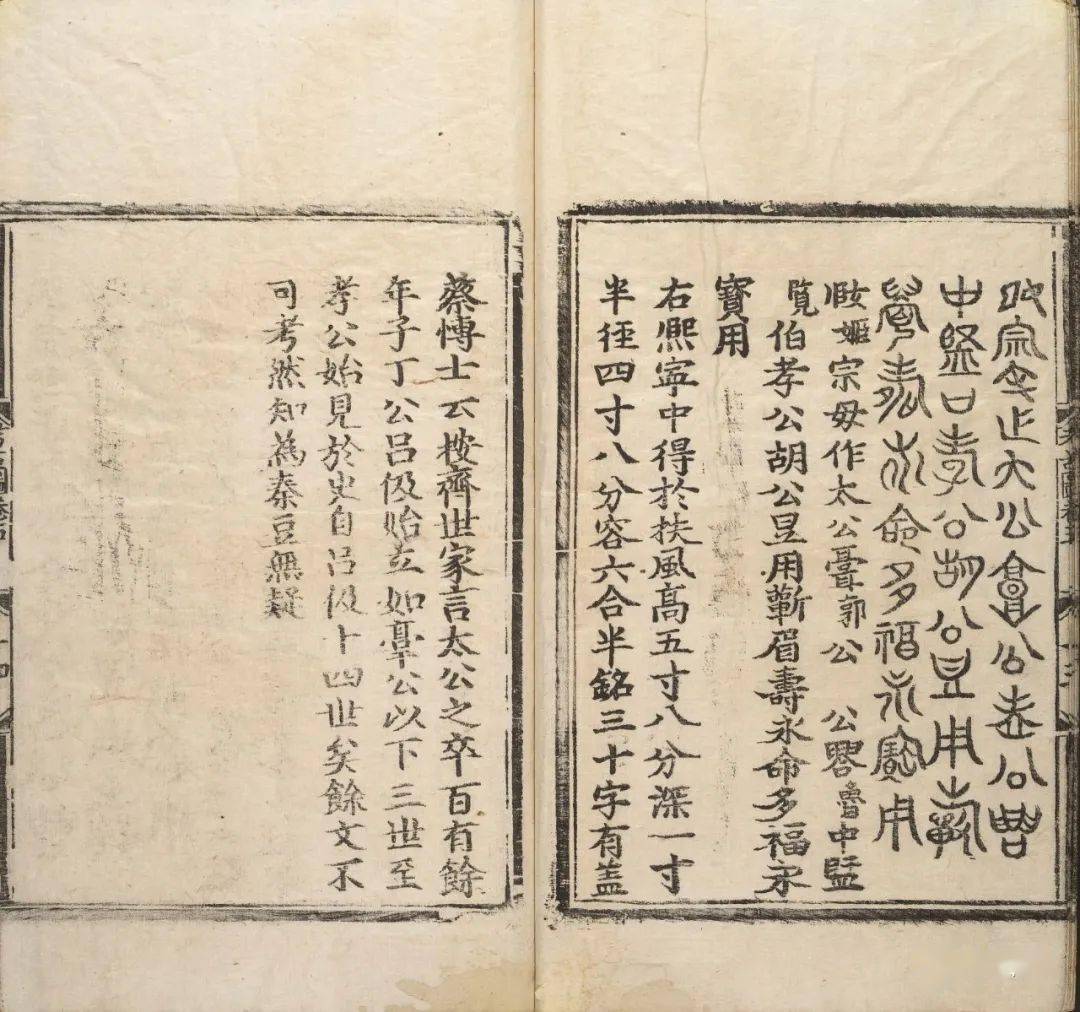 宗大公公公
中孝公胡公用
眉壽永命多福永寶用
姬宗毋作太公郭公 公魯中
覽伯孝公胡公昱用蘄眉壽永命多福永
寶用
右熙寧中得於扶風高五寸八分深一寸
半徑四寸八分容六合半銘三十字有盖
蔡慱士云桉齊世家言太公之卒百有餘
年子丁公吕伋始立如公以下三世至
孝公始見於史自吕伋十四世矣餘文不
可考然知為秦豆無疑